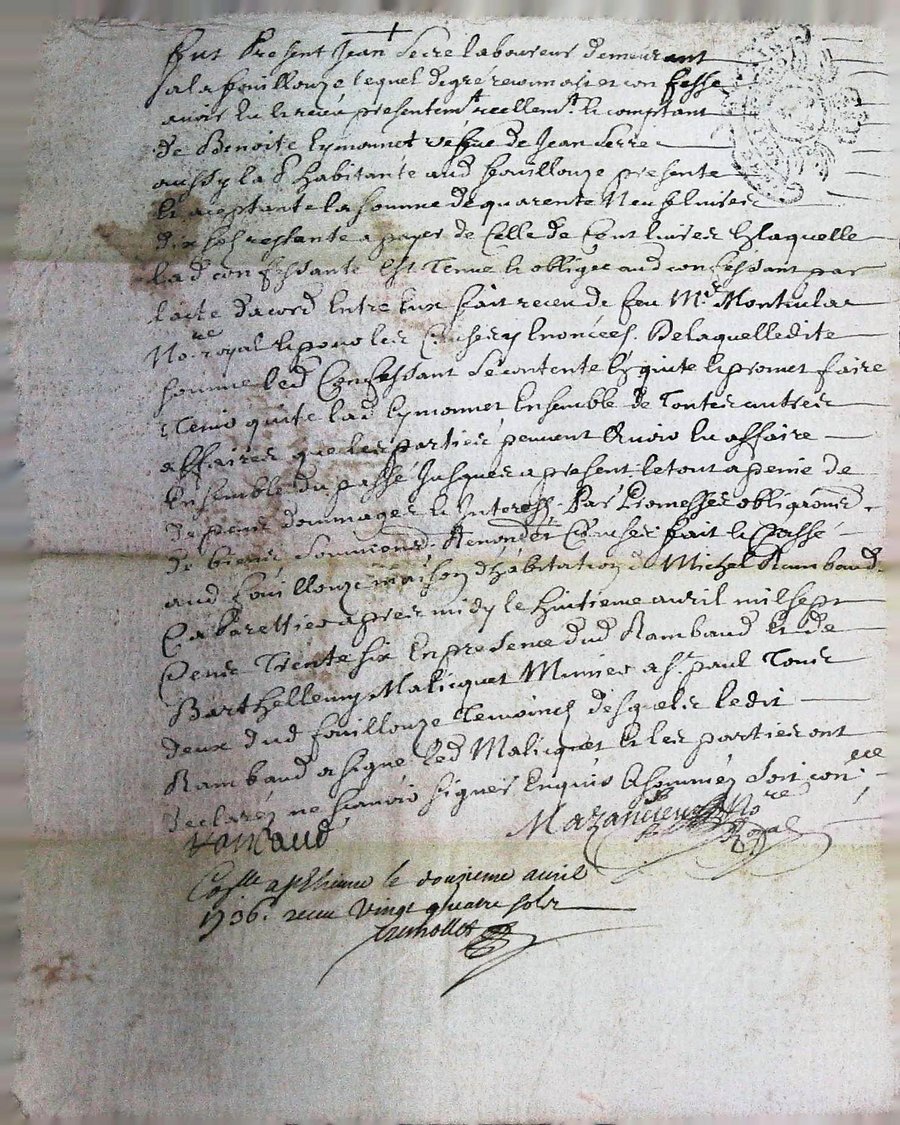 Fut Present Jean Serre laboureur demeurant
a la fouillouze lequel de gré reconnoist et confesse
avoir eu et receu presentem.t reellem.t et comptant
de Benoite Eymonnet vefve de Jean Serre
aussy la P. habitante aud fouillouze presente
et aceptante la somme de quarente neuf livres
dix sols restante a payer de Celle de Cent livres a laquelle
lad confessante est tenue et obligée aud confessant par
l'acte dacord Entre Eux fait receu de feu M.e Montuclar
No.re royal et pour les Causes y Enoncées. De laquelle dite
somme led Confessant se contente Et quite et promet faire
tenir quite lad Eymonnet Ensemble de toutes autres
affaires que les parties peuvent Avoir Eu affaire
Ensemble du passé Jusques a present le tout a peine de
tous dommages et Interests. Par Promesses obligaōns
de biens soumions Renonđ et Clauses fait et Passé
aud fouillouze maison d'habitation de Michel Rambaud
Cabarettier apres midy le huitieme avril mil sept
Cens Trente Six En presence dud Rambaud Et de
Barthellemy Malicquet Munier a S.t paul Tous
deux dud fouillouze temoins desquels ledit
Rambaud a signé led Malicquet Et les parties ont
declaré ne scavoir signer Enquis Et sommés soit con.lle
Rambaud Mazancieux No.re Royal
Con.lle a St Etienne le douzieme avril
1736. receu vingt quatre sols